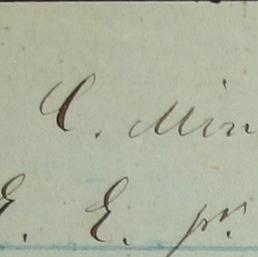 C. Min
E. E. pr.